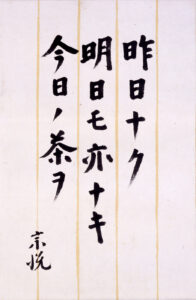 昨日ナク
明日モ亦ナキ
今日ノ茶ヲ
宗悦